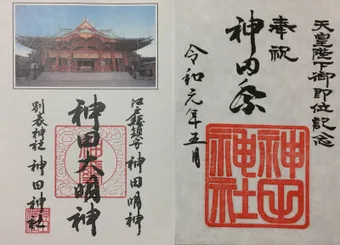 江戸総鎮守 神田明神
神田大明神
別表神社 神田神社
天皇陛下御即位記念
奉祝
神田祭
令和元年五月
神田神社